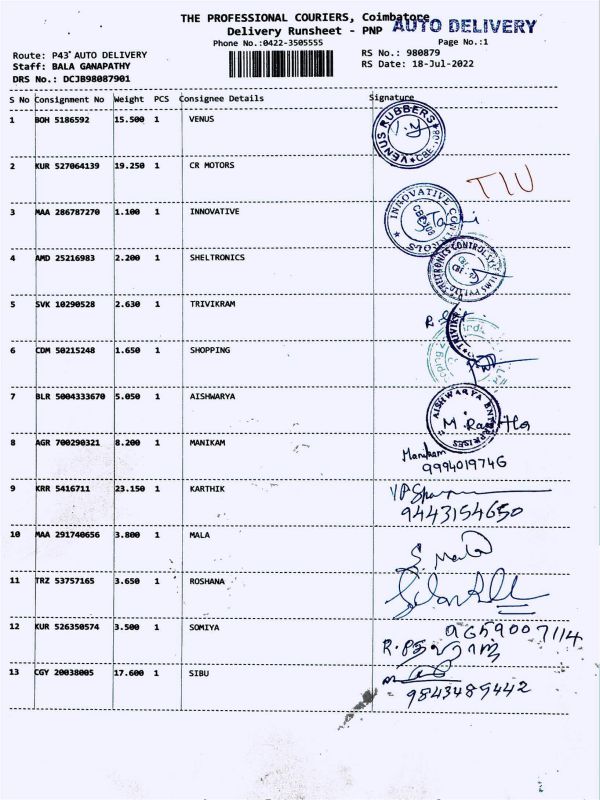 THE PROFESSIONAL COURIERS, Coimbatore
AUTO DELIVERY
Delivery Runsheet - PNP
Phone No.:0422-3505555
Page No.:1
Route: P43" AUTO DELIVERY
RS No.: 980879
Staff: BALA GANAPATHY
RS Date: 18-Jul-2022
DRS No.: DCJB98087901
S No Consignment No Weight PCS Consignee Details Signature
1 BOH 5186592 15.500 1 VENUS
VENUS RUBBERS CBE
2 KUR 527064139 19.250 1 CR MOTORS
TIU
3 MAA 286787270 1.100 1 INNOVATIVE
INNOVATIVE CONTROLS
4 AMD 25216983 2.200 1 SHELTRONICS
5 SVK 10290528 2.630 1 TRIVIKRAM
6 CDM 50215248 1.650 1 SHOPPING
7 BLR 5004333670 5.050 1 AISHWARYA
AISHWARYA ENTERPRISES
8 AGR 700290321 8.200 1 MANIKAM
Manikam
9994019746
9 KRR 5416711 23.150 1 KARTHIK
9443154650
10 MAA 291740656 3.800 1 MALA
S. Mala
11 TRZ 53757165 3.650 1 ROSHANA
12 KUR 526350574 3.500 1 SOMIYA
9659007114
13 CGY 20038005 17.600 1 SIBU
9843489442